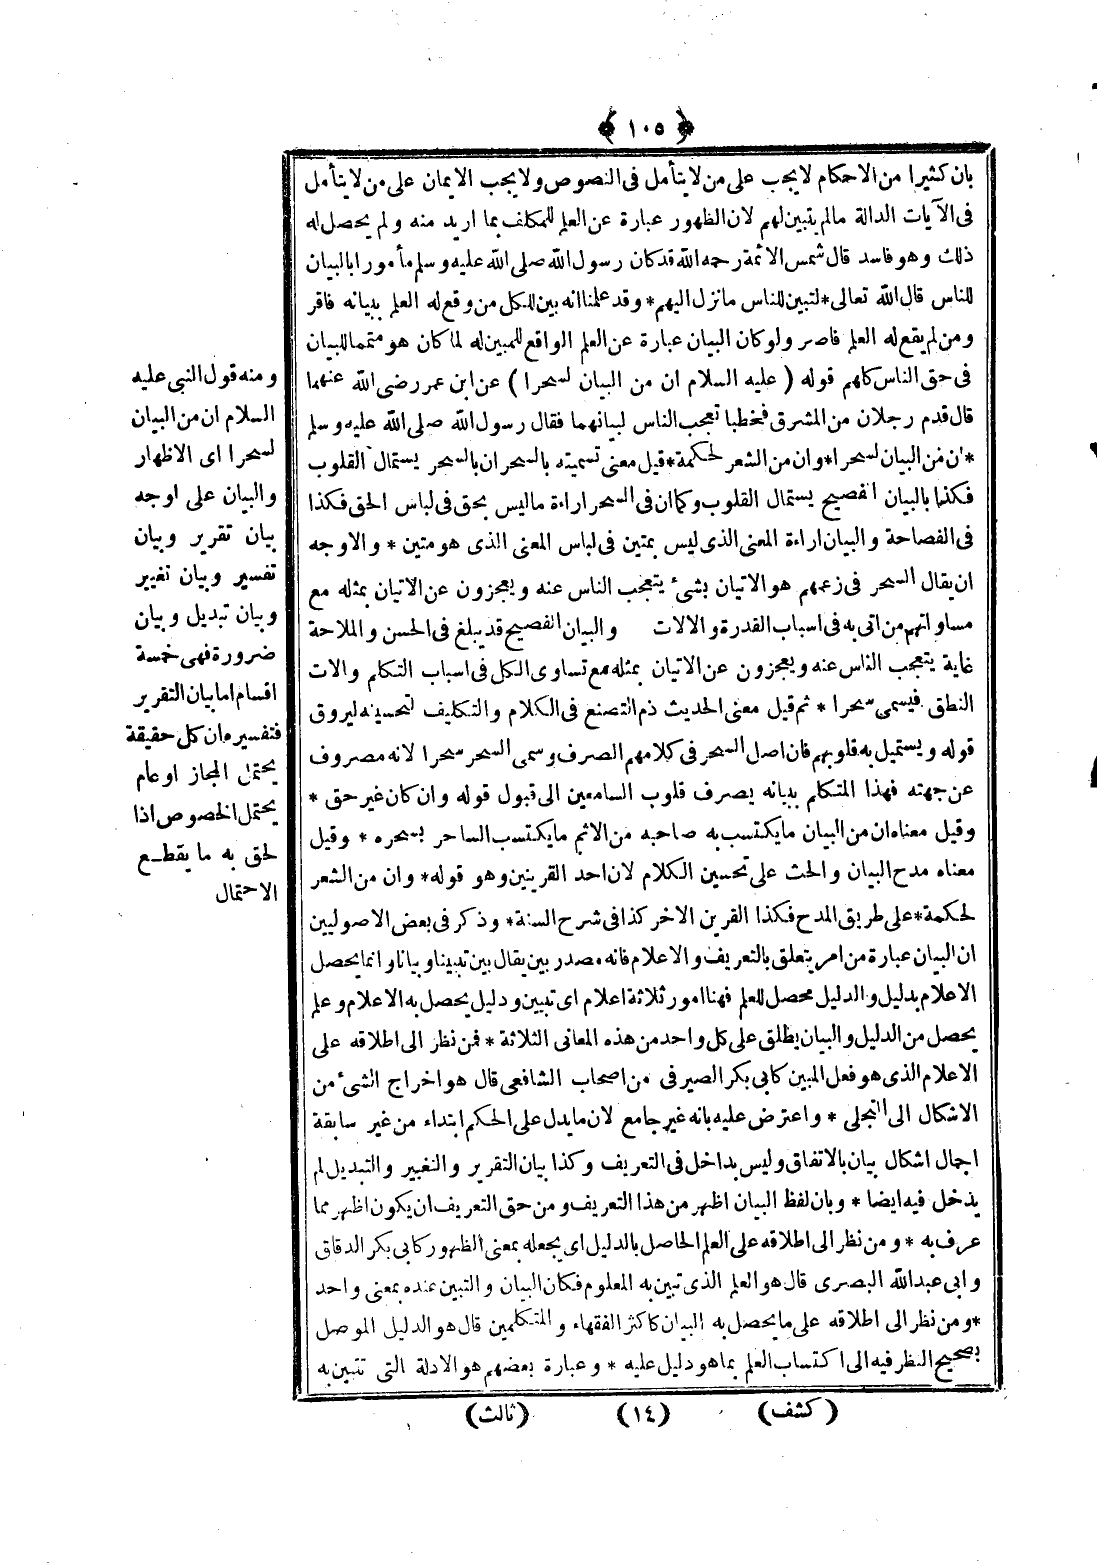 ﴿ ١٠٥ ﴾
بان كثيرا من الاحكام لايجب على من لا يتأمل فى النصوص ولا يجب الايمان على من لا يتأمل
فى الآيات الدالة مالم يتبين لهم لان الظهور عبارة عن العلم للمكلف بما اريد منه ولم يحصل له
ذلك وهو فاسد قال شمس الائمة رحمه الله قد كان رسول الله صلى الله عليه وسلم مأمورا بالبيان
للناس قال الله تعالى * لتبين للناس مانزل اليهم * وقد علمنا انه بين للكل من وقع له العلم ببيانه فاقر
ومن لم يقع له العلم فاصر ولو كان البيان عبارة عن العلم الواقع للمبين له لما كان هو متمما للبيان
فى حق الناس كلهم قوله ( عليه السلام ان من البيان لسحرا ) عن ابن عمر رضى الله عنهما
قال قدم رجلان من المشرق فخطبا تعجب الناس لبيانهما فقال رسول الله صلى الله عليه وسلم
* ان من البيان لسحرا * وان من الشعر لحكمة * قيل معنى تسميته بالسحر ان بالسحر يستمال القلوب
فكذا بالبيان الفصيح يستمال القلوب وكما ان فى السحر اراءة ماليس بحق فى لباس الحق فكذا
فى الفصاحة والبيان اراءة المعنى الذى ليس بمتين فى لباس المعنى الذى هو متين * والاوجه
ان يقال السحر فى زعمهم هو الاتيان بشئ يتعجب الناس عنه ويعجزون عن الاتيان بمثله مع
مساواتهم من اتى به فى اسباب القدرة والالات والبيان الفصيح قد يبلغ فى الحسن والملاحة
غاية يتعجب الناس عنه ويعجزون عن الاتيان بمثله مع تساوى الكل فى اسباب التكلم والات
النطق فيسمى سحرا * ثم قيل معنى الحديث ذم التصنع فى الكلام والتكليف لتحسينه ليروق
قوله ويستميل به قلوبهم فان اصل السحر فى كلامهم الصرف وسمى السحر سحرا لانه مصروف
عن جهته فهذا المتكلم ببيانه يصرف قلوب السامعين الى قبول قوله وان كان غير حق *
وقيل معناه ان من البيان مايكتسب به صاحبه من الاثم مايكتسب الساحر بسحره * وقيل
معناه مدح البيان والحث على تحسين الكلام لان احد القرينين وهو قوله * وان من الشعر
لحكمة * على طريق المدح فكذا القرين الاخر كذا فى شرح السنة * وذكر فى بعض الاصوليين
ان البيان عبارة من امر يتعلق بالتعريف والاعلام فانه مصدر بين يقال بين تبيينا وبيانا وانما يحصل
الاعلام بدليل والدليل محصل للعلم فهنا امور ثلاثة اعلام اى تبيين ودليل يحصل به الاعلام وعلم
يحصل من الدليل والبيان يطلق على كل واحد من هذه المعانى الثلاثة * فمن نظر الى اطلاقه على
الاعلام الذى هو فعل المبين كابى بكر الصيرفى من اصحاب الشافعى قال هو اخراج الشئ من
الاشكال الى التجلى * واعترض عليه بانه غير جامع لان مايدل على الحكم ابتداء من غير سابقة
اجمال اشكال بيان بالاتفاق وليس بداخل فى التعريف وكذا بيان التقرير والتغيير والتبديل لم
يدخل فيه ايضا * وبان لفظ البيان اظهر من هذا التعريف ومن حق التعريف ان يكون اظهر مما
عرف به * ومن نظر الى اطلاقه على العلم الحاصل بالدليل اى يجعله بمعنى الظهور كابى بكر الدقاق
وابى عبدالله البصرى قال هو العلم الذى تبين به المعلوم فكان البيان والتبين عنده بمعنى واحد
* ومن نظر الى اطلاقه على مايحصل به البيان كاكثر الفقهاء والمتكلمين قال هو الدليل الموصل
بصحيح النظر فيه الى اكتساب العلم بماهو دليل عليه * وعبارة بعضهم هو الادلة التى تتبين به
ومنه قول النبى عليه
السلام ان من البيان
لسحرا اى الاظهار
والبيان على اوجه
بيان تقرير وبيان
تفسير وبيان تغيير
وبيان تبديل وبيان
ضرورة فهى خمسة
اقسام اما بيان التقرير
فتفسيره ان كل حقيقة
يحتمل المجاز او عام
يحتمل الخصوص اذا
لحق به ما يقطع
الاحتمال
( كشف ) ( ١٤ ) ( ثالث )